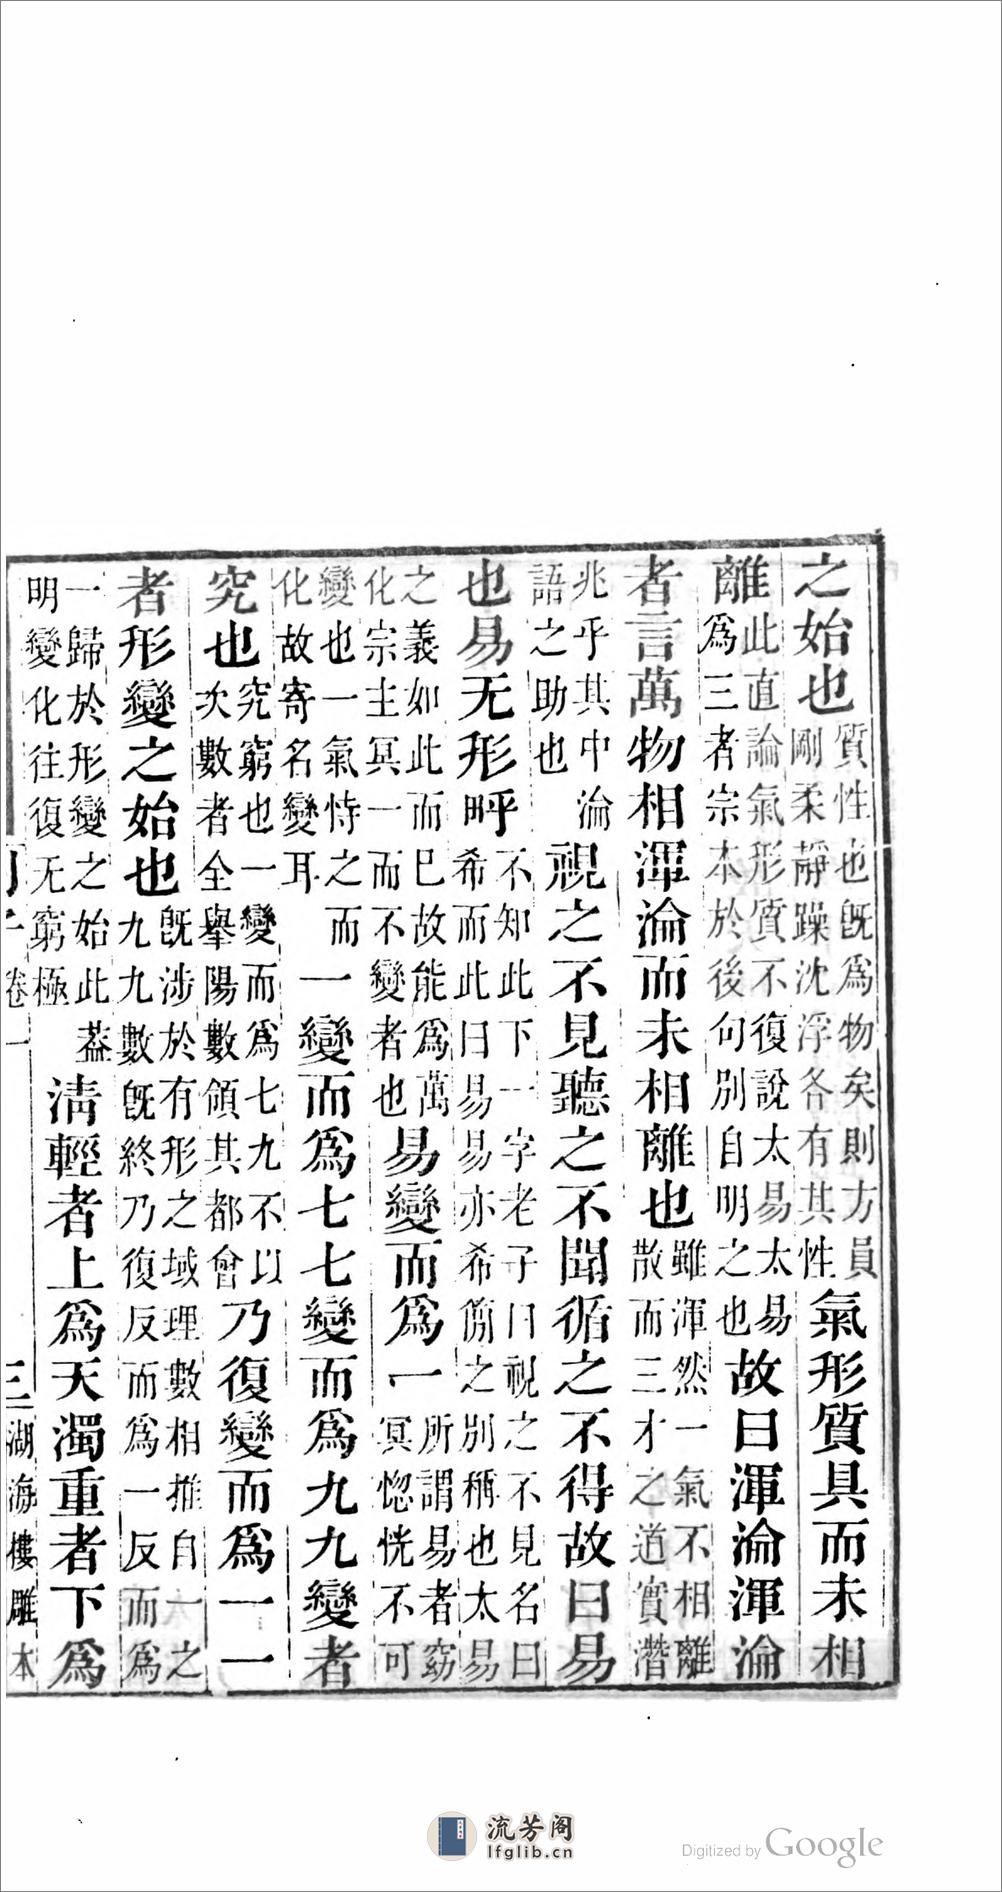 之始也質性也既爲物矣則方員剛柔靜躁沈浮各有其性氣形質具而未相
離此直論氣形質不復說太易太易爲三者宗本於後句別自明之也故曰渾淪渾淪
者言萬物相渾淪而未相離也雖渾然一氣不相離散而三才之道實潛
兆乎其中淪語之助也視之不見聽之不聞循之不得故曰易
也易无形㖕不知此下一字老子曰視之不見名曰希而此曰易易亦希簡之別稱也太易
之義如此而已故能爲萬化宗主冥一而不變者也易變而爲一所謂易者窈冥惚恍不可
變也一氣恃之而化故寄名變耳一變而爲七七變而爲九九變者
究也究窮也一變而爲七九不以次數者全舉陽數領其都會乃復變而爲一一
者形變之始也既涉於有形之域理數相推自一之九九數既終乃復反而爲一反而爲
一歸於形變之始此蓋明變化往復无窮極清輕者上爲天濁重者下爲
卷一
三
湖海樓雕本
流芳阁
lfglib.cn
Digitized by Google